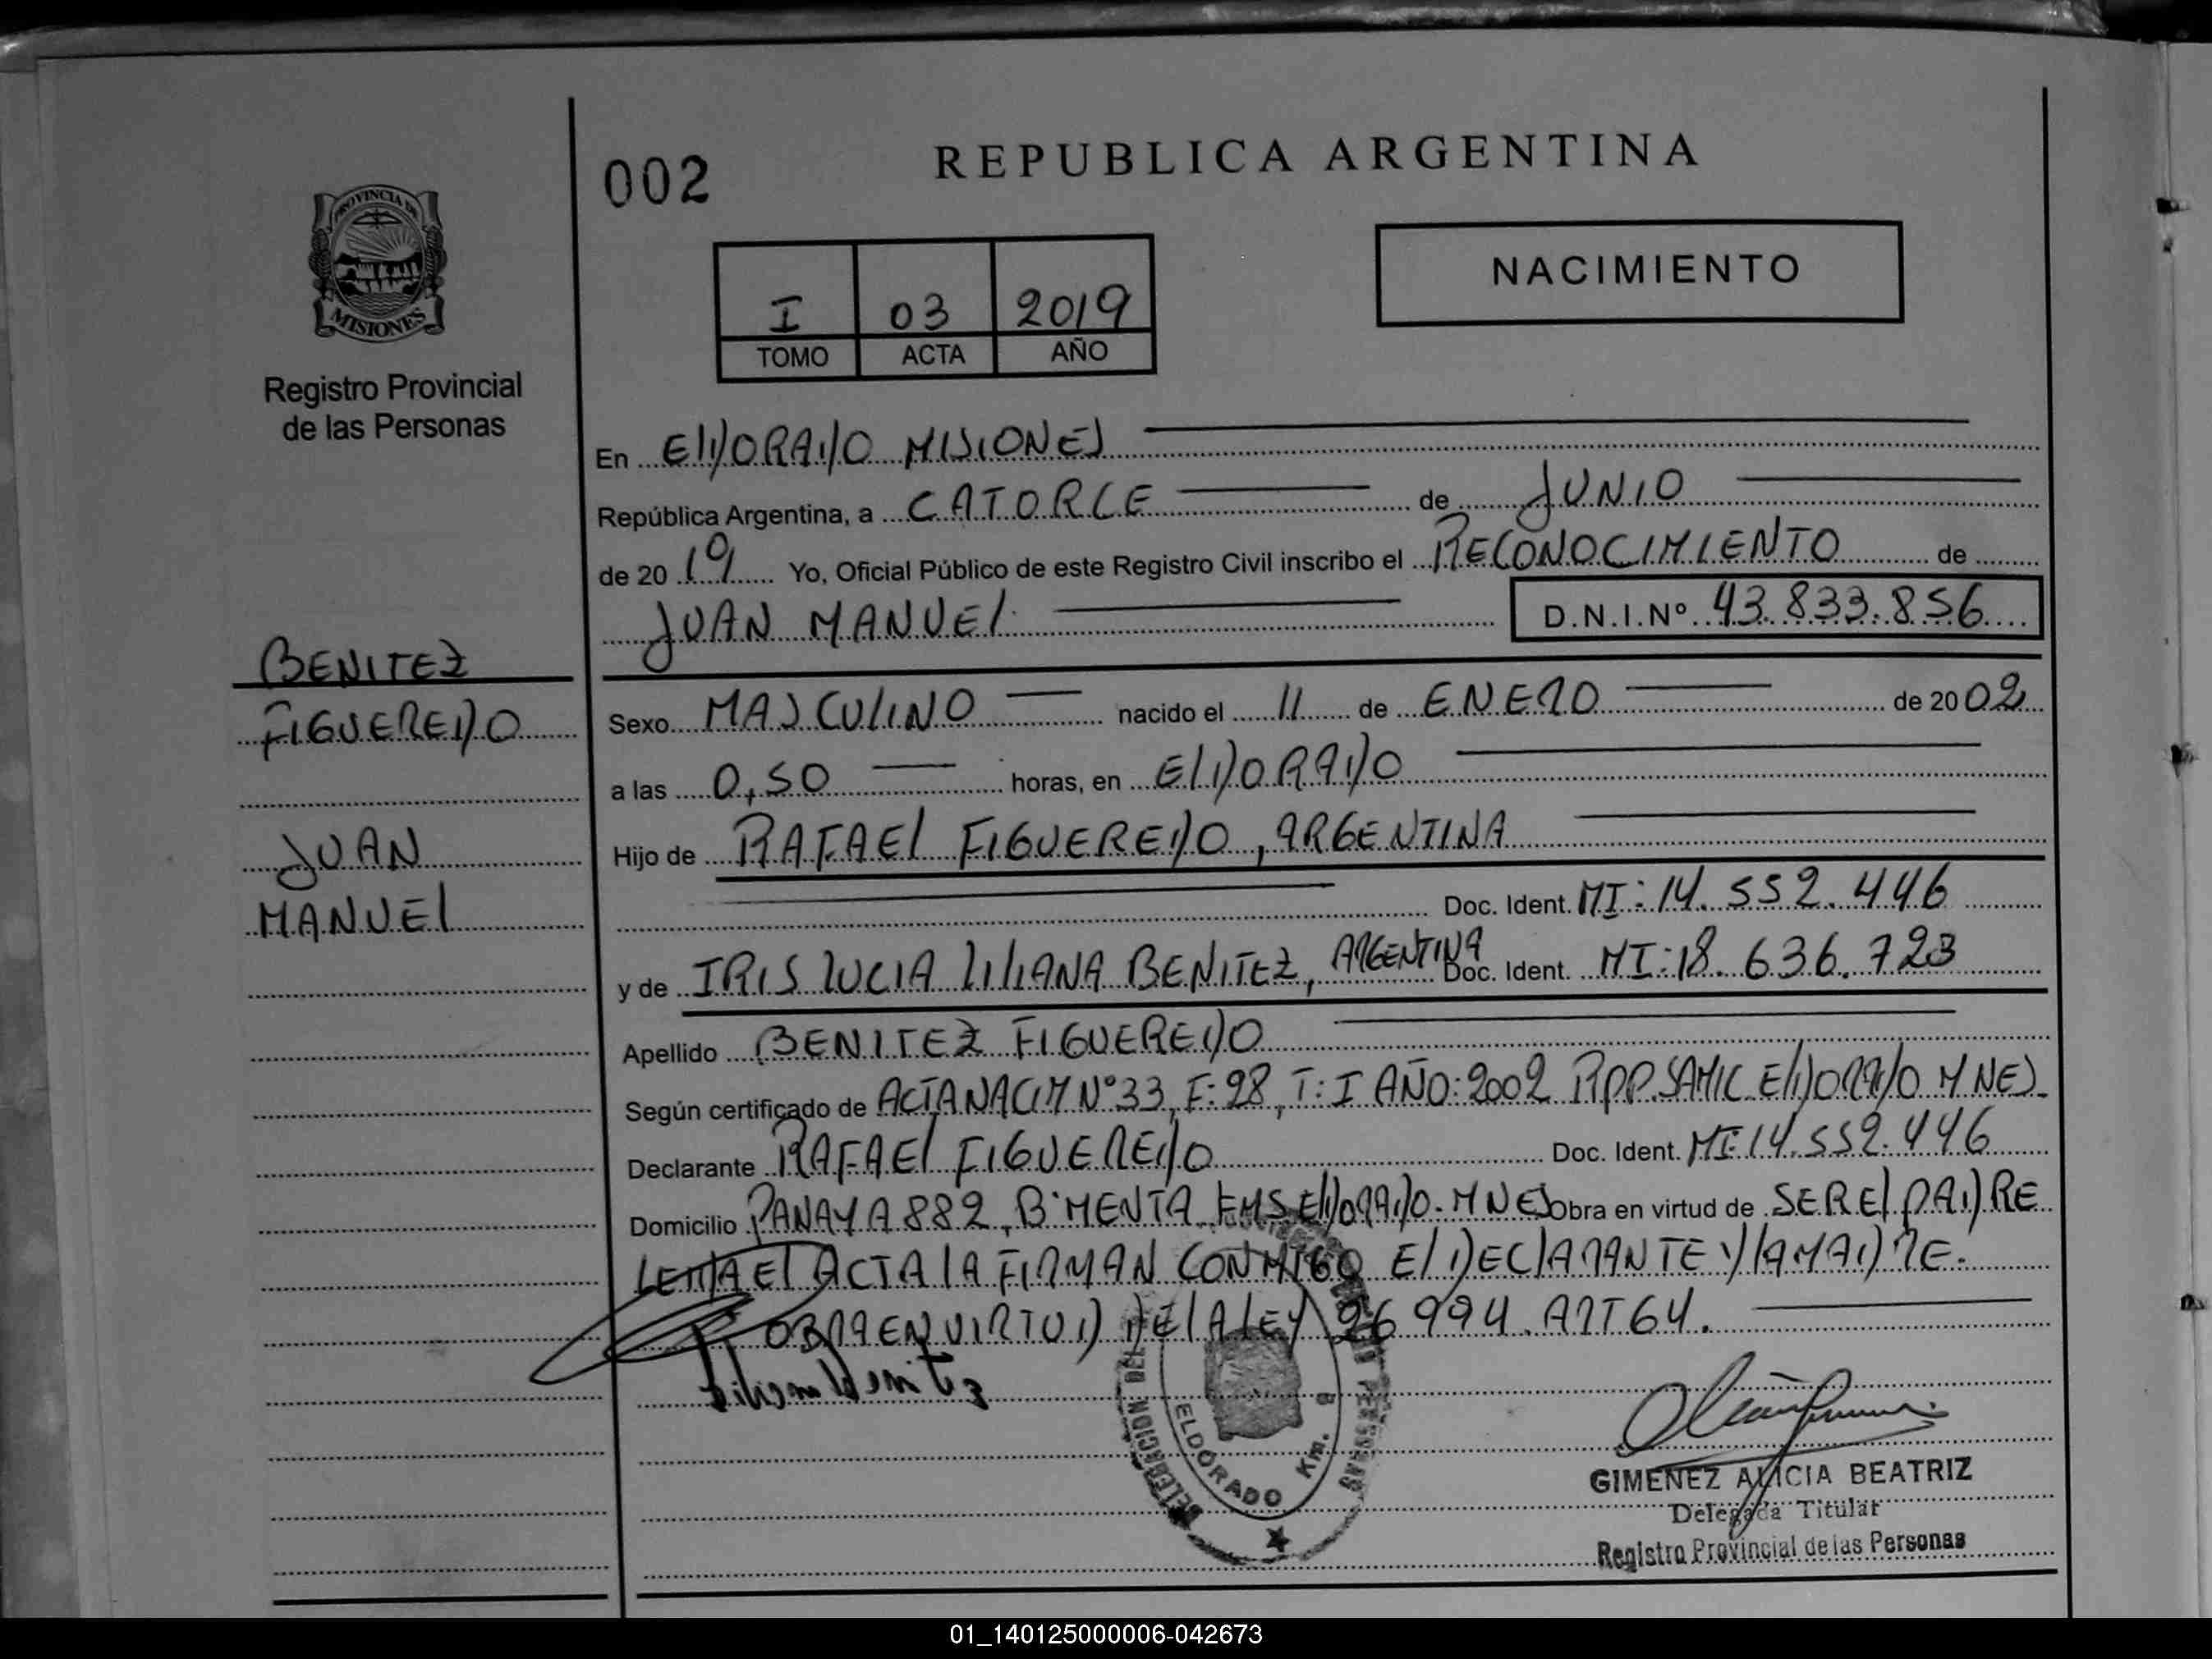 PROVINCIA DE
MISIONES
Registro Provincial
de las Personas
BENITEZ
FIGUEREDO
JUAN
MANUEL
002
REPUBLICA ARGENTINA
I 03 2019
TOMO ACTA AÑO
NACIMIENTO
En ELDORADO MISIONES
República Argentina, a CATORCE de JUNIO
de 2019 Yo, Oficial Público de este Registro Civil inscribo el RECONOCIMIENTO de
JUAN MANUEL D.N.I.Nº 43.833.856
Sexo MASCULINO nacido el 11 de ENERO de 2002
a las 0,50 horas, en ELDORADO
Hijo de RAFAEL FIGUEREDO, ARGENTINA
Doc. Ident. MI: 14.552.446
y de IRIS LUCIA LILIANA BENITEZ, ARGENTINA Doc. Ident. MI: 18.636.723
Apellido BENITEZ FIGUEREDO
Según certificado de ACTA NACIM Nº 33, F: 28, T: I AÑO: 2002 RPP. SAMIC ELDORADO MNES.
Declarante RAFAEL FIGUEREDO Doc. Ident. MI: 14.552.446
Domicilio PANAYA 882, Bº MENTA KM8 ELDORADO. MNES Obra en virtud de SER EL PADRE
LEIDA EL ACTA LA FIRMAN CONMIGO EL DECLARANTE Y LA MADRE.
OBRA EN VIRTUD DE LA LEY 26994. ART 64.
Liliana Benitez
DELEGACION DEL PERSONAS
ELDORADO Km. 8
GIMENEZ ALICIA BEATRIZ
Delegada Titular
Registro Provincial de las Personas
01_140125000006-042673